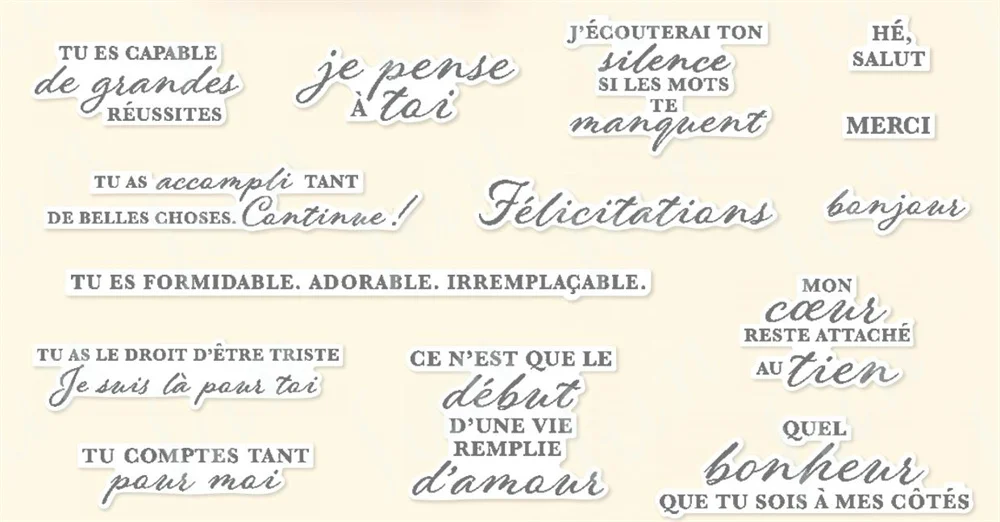 TU ES CAPABLE
de grandes
RÉUSSITES
je pense
À toi
J'ÉCOUTERAI TON
silence
SI LES MOTS
TE
manquent
HÉ,
SALUT
MERCI
TU AS accompli TANT
DE BELLES CHOSES. Continue!
Félicitations
bonjour
TU ES FORMIDABLE. ADORABLE. IRREMPLAÇABLE.
MON
cœur
RESTE ATTACHÉ
AU tien
TU AS LE DROIT D'ÊTRE TRISTE
Je suis là pour toi
CE N'EST QUE LE
début
D'UNE VIE
REMPLIE
d'amour
TU COMPTES TANT
pour moi
QUEL
bonheur
QUE TU SOIS À MES CÔTÉS